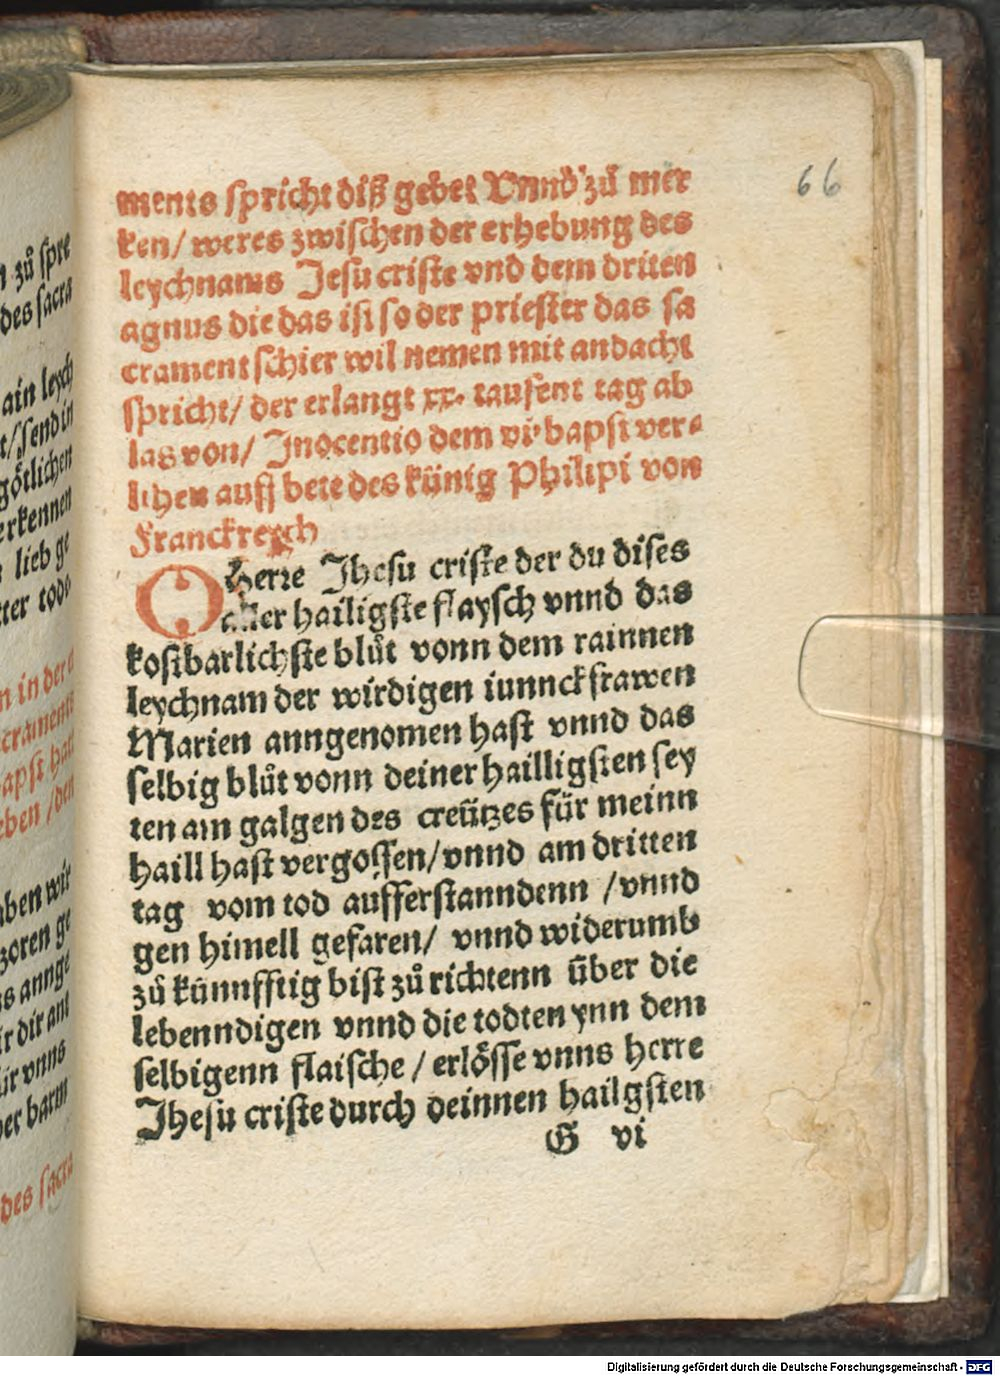 66
ments spricht diß gebet Vnnd zů mer
ken/ weres zwischen der erhebung des
leychnams Jesu criste vnd dem driten
agnus die das ist so der priester das sa
crament schier wil nemen mit andacht
spricht/ der erlangt xx. tausent tag ab
las von/ Inocentio dem vi bapst ver⸗
lihen auff bete des künig Philipi von
Franckreych
O herre Jhesu criste der du dises
aller hailigste flaysch vnnd das
kostbarlichste blůt vonn dem rainnen
leychnam der wirdigen iunnckfrawen
Marien anngenomen hast vnnd das
selbig blůt vonn deiner hailligsten sey
ten am galgen des creützes für meinn
haill hast vergossen/vnnd am dritten
tag vom tod aufferstanndenn /vnnd
gen himell gefaren/ vnnd widerumb
zů künnfftig bist zů richtenn über die
lebenndigen vnnd die todten ynn dem
selbigenn flaische / erlösse vnns herre
Jhesu criste durch deinnen hailgsten
G vi
n zů spre
des sacra
ain leych
t/ send in
götlichen
erkennen
lieb ge
ter tods
n in der
crament
apst hat
eben /den
aben wir
zoren ge
s annge
r dir ant
ir vnns
er barm
des sacra
Digitalisierung gefördert durch die Deutsche Forschungsgemeinschaft - DFG